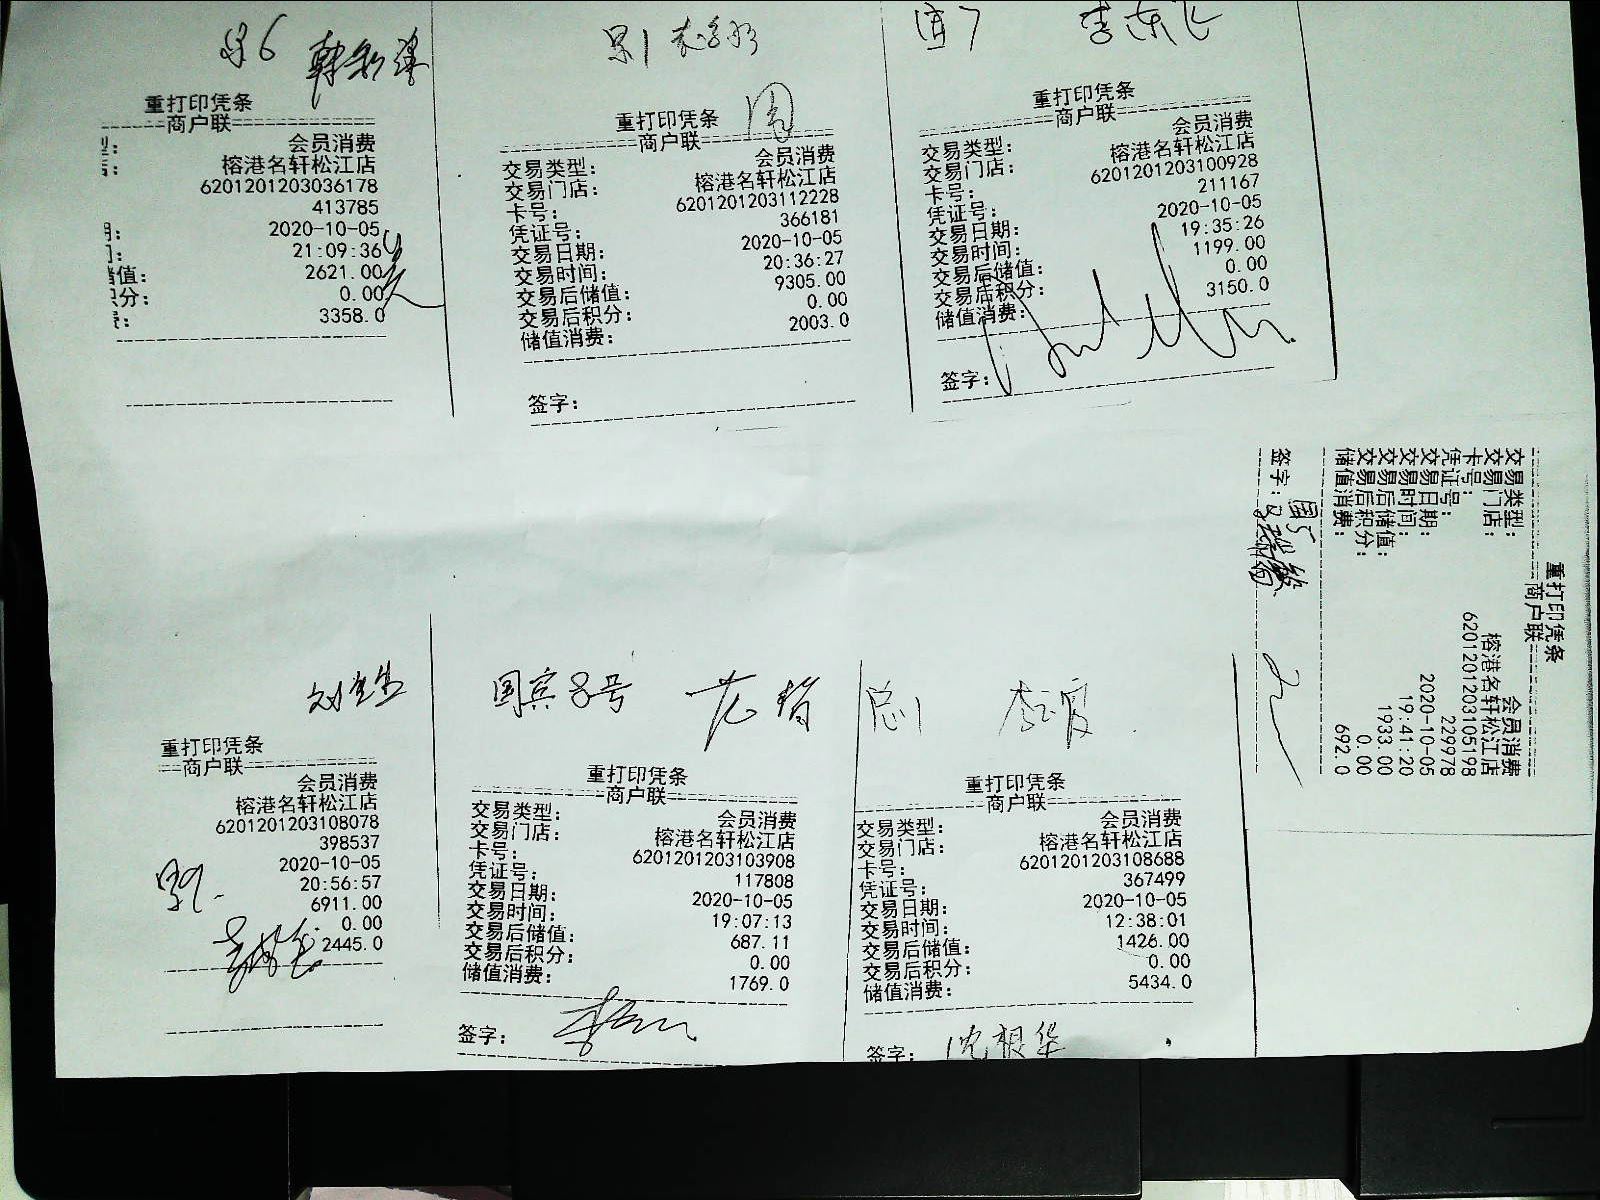 重打印凭条
商户联
会员消费
榕港名轩松江店
6201201203036178
413785
2020-10-05
21:09:36
储值: 2621.00
积分: 0.00
3358.0
重打印凭条
商户联
交易类型: 会员消费
交易门店: 榕港名轩松江店
卡号: 6201201203112228
凭证号: 366181
交易日期: 2020-10-05
交易时间: 20:36:27
交易后储值: 9305.00
交易后积分: 0.00
储值消费: 2003.0
签字:
重打印凭条
商户联
交易类型: 会员消费
交易门店: 榕港名轩松江店
卡号: 6201201203100928
凭证号: 211167
交易日期: 2020-10-05
交易时间: 19:35:26
交易后储值: 1199.00
交易后积分: 0.00
储值消费: 3150.0
签字:
重打印凭条
商户联
交易类型: 会员消费
交易门店: 榕港名轩松江店
卡号: 6201201203105198
凭证号: 229978
交易日期: 2020-10-05
交易时间: 19:41:20
交易后储值: 1933.00
交易后积分: 0.00
储值消费: 692.0
签字:
重打印凭条
商户联
会员消费
榕港名轩松江店
6201201203108078
398537
2020-10-05
20:56:57
6911.00
0.00
2445.0
国宾8号
重打印凭条
商户联
交易类型: 会员消费
交易门店: 榕港名轩松江店
卡号: 6201201203103908
凭证号: 117808
交易日期: 2020-10-05
交易时间: 19:07:13
交易后储值: 687.11
交易后积分: 0.00
储值消费: 1769.0
签字:
总1
重打印凭条
商户联
交易类型: 会员消费
交易门店: 榕港名轩松江店
卡号: 6201201203108688
凭证号: 367499
交易日期: 2020-10-05
交易时间: 12:38:01
交易后储值: 1426.00
交易后积分: 0.00
储值消费: 5434.0
签字: 沈根华